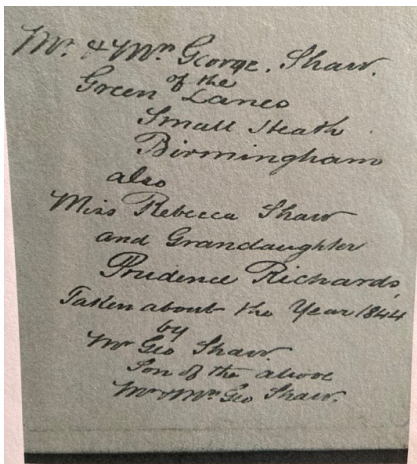 Mr. & Mrs George. Shaw.
of the
Green Lanes
Small Heath
Birmingham
also
Miss Rebecca Shaw
and Grandaughter
Prudence Richards,
Taken about the Year 1844
by
Mr Geo Shaw.
Son of the above
Mr & Mrs Geo Shaw.